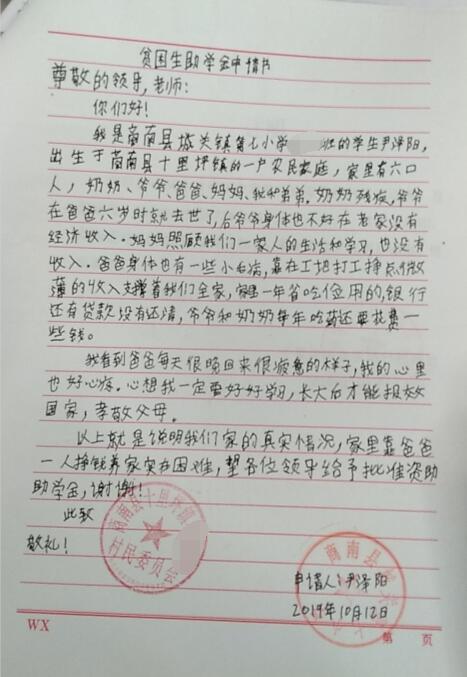 贫困生助学金申请书
尊敬的领导,老师:
你们好!
我是商南县城关镇第七小学 班的学生尹泽阳,
出生于商南县十里坪镇的一户农民家庭,家里有六口
人,奶奶、爷爷、爸爸、妈妈、我和弟弟。奶奶残疾,爷爷
在爸爸六岁时就去世了,后爷爷身体也不好在老家没有
经济收入。妈妈照顾我们一家人的生活和学习,也没有
收入。爸爸身体也有一些小毛病,靠在工地打工挣点微
薄的收入支撑着我们全家,家里一年省吃俭用的,银行
还有贷款没有还清,爷爷和奶奶每年吃药还要花费一
些钱。
我看到爸爸每天很晚回来很疲惫的样子,我的心里
也好心疼。心想我一定要好好学习,长大后才能报效
国家,孝敬父母。
以上就是说明我们家的真实情况,家里靠爸爸
一人挣钱养家实在困难,望各位领导给予批准资助
助学金,谢谢!
此致
敬礼!
商南县十里坪镇
村民委员会
商南县
申请人:尹泽阳
2019年10月12日
WX
第 页